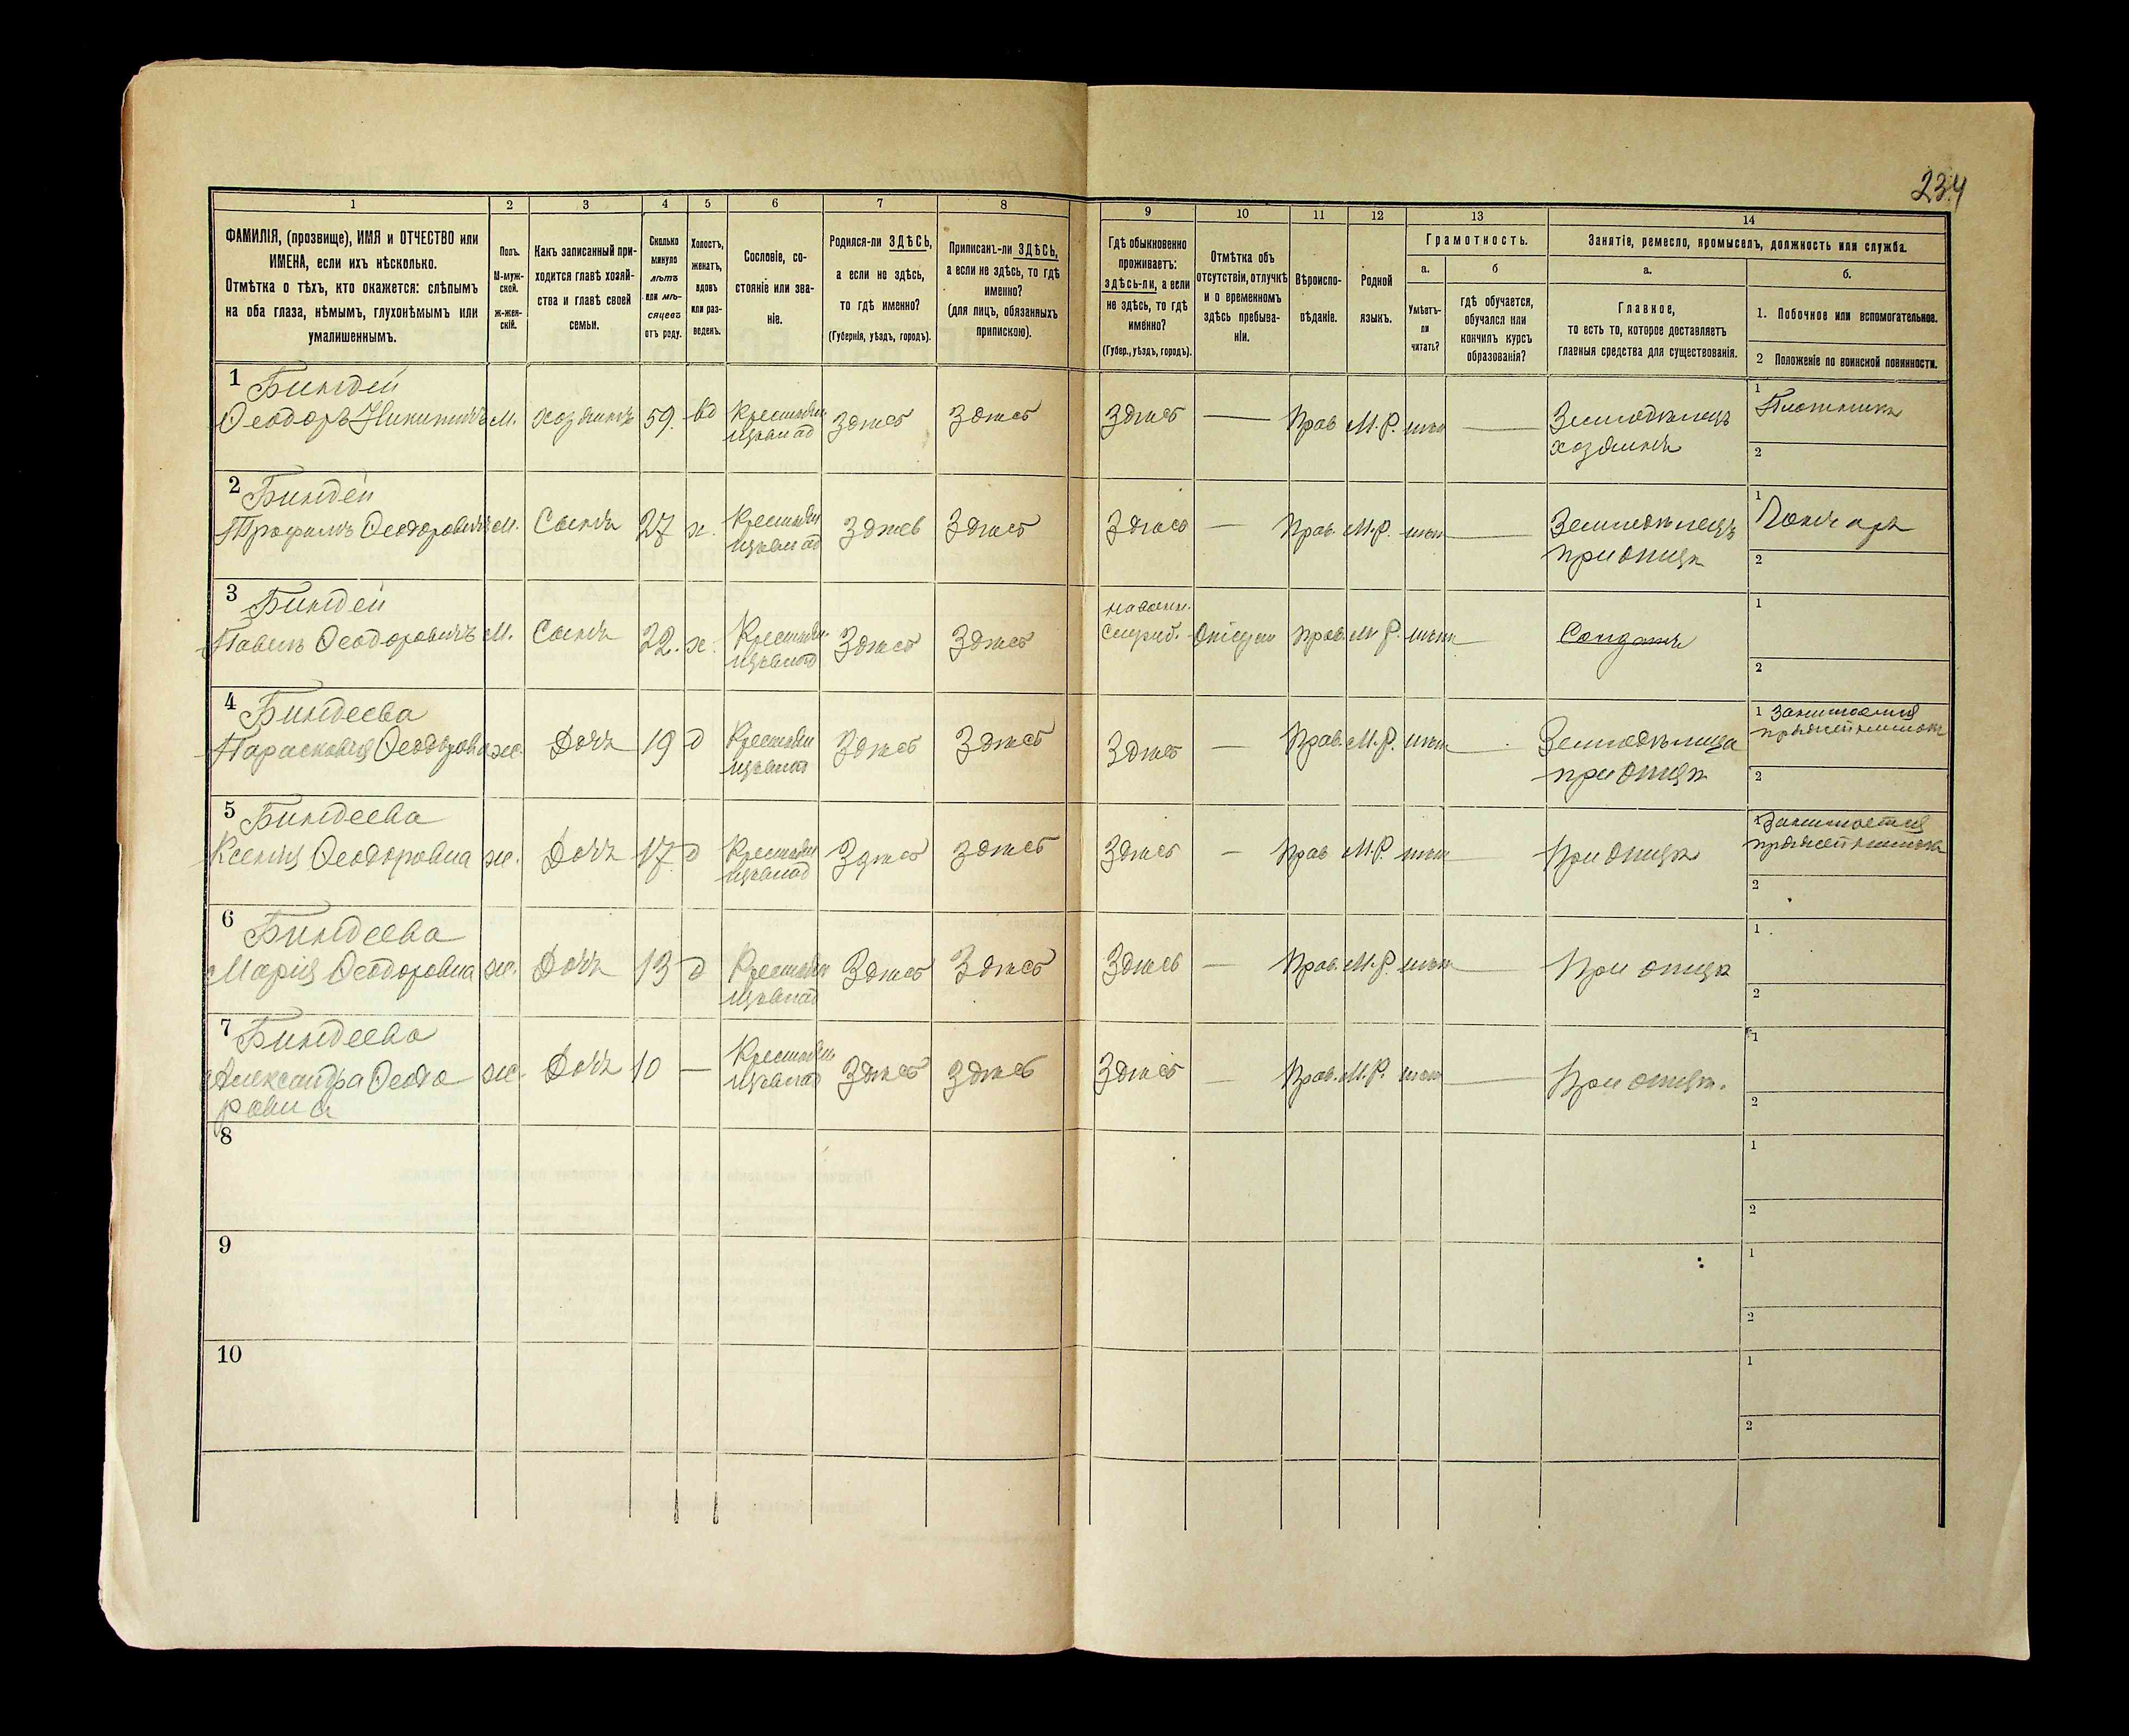 234
1 2 3 4 5 6 7 8 9 10 11 12 13 14
ФАМИЛІЯ, (прозвище), ИМЯ и ОТЧЕСТВО или
ИМЕНА, если ихъ нѣсколько.
Отмѣтка о тѣхъ, кто окажется: слѣпымъ
на оба глаза, нѣмымъ, глухонѣмымъ или
умалишеннымъ.
Полъ.
М-муж-
ской.
Ж-жен-
скій.
Какъ записанный при-
ходится главѣ хозяй-
ства и главѣ своей
семьи.
Сколько
минуло
лѣтъ
или мѣ-
сяцевъ
отъ роду.
Холостъ,
женатъ,
вдовъ
или раз-
веденъ.
Сословіе, со-
стояніе или зва-
ніе.
Родился-ли ЗДѢСЬ,
а если не здѣсь,
то гдѣ именно?
(Губернія, уѣздъ, городъ).
Приписанъ-ли ЗДѢСЬ,
а если не здѣсь, то гдѣ
именно?
(для лицъ, обязанныхъ
припискою).
Гдѣ обыкновенно
проживаетъ:
здѣсь-ли, а если
не здѣсь, то гдѣ
именно?
(Губер., уѣздъ, городъ).
Отмѣтка объ
отсутствіи, отлучкѣ
и о временномъ
здѣсь пребыва-
ніи.
Вѣроиспо-
вѣданіе.
Родной
языкъ.
Грамотность.
а.
Умѣетъ-
ли
читать?
б
гдѣ обучается,
обучался или
кончилъ курсъ
образованія?
Занятіе, ремесло, промыселъ, должность или служба.
а.
Главное,
то есть то, которое доставляетъ
главныя средства для существованія.
б.
1. Побочное или вспомогательное.
2 Положеніе по воинской повинности.
1 Биндей
Ѳеодоръ Никитичъ М. хозяинъ 59. вд Крестьян. здѣсь здѣсь здѣсь — Прав М.Р. нѣтъ — Земледѣлецъ
хозяинъ
1 Плотникъ
2
2 Биндей
Трофимъ Ѳеодоровичъ М. Сынъ 27 х. Крестьян здѣсь здѣсь здѣсь — Прав. М.Р. нѣтъ — Земледѣлецъ
при отцѣ
1 Гончаръ
2
3 Биндей
Павелъ Ѳеодоровичъ М. Сынъ 22. х. Крестьян. здѣсь здѣсь Прав. М.Р. нѣтъ — Солдатъ
1
2
4 Биндеева
Парасковія Ѳеодоровна ж. Дочь 19 д Крестьян здѣсь здѣсь здѣсь — Прав. М.Р. нѣтъ — Земледѣлица
при отцѣ
1 Занимается
2
5 Биндеева
Ксенія Ѳеодоровна ж. Дочь 17 д Крестьян здѣсь здѣсь здѣсь — Прав М.Р. нѣтъ — При отцѣ
1 Занимается
2
6 Биндеева
Марія Ѳеодоровна ж. Дочь 13 д Крестьян здѣсь здѣсь здѣсь — Прав. М.Р. нѣтъ — При отцѣ
1
2
7 Биндеева
Александра Ѳеодо
ровна ж. Дочь 10 — Крестьян. здѣсь здѣсь здѣсь — Прав. М.Р. нѣтъ — При отцѣ.
1
2
8
1
2
9
1
2
10
1
2